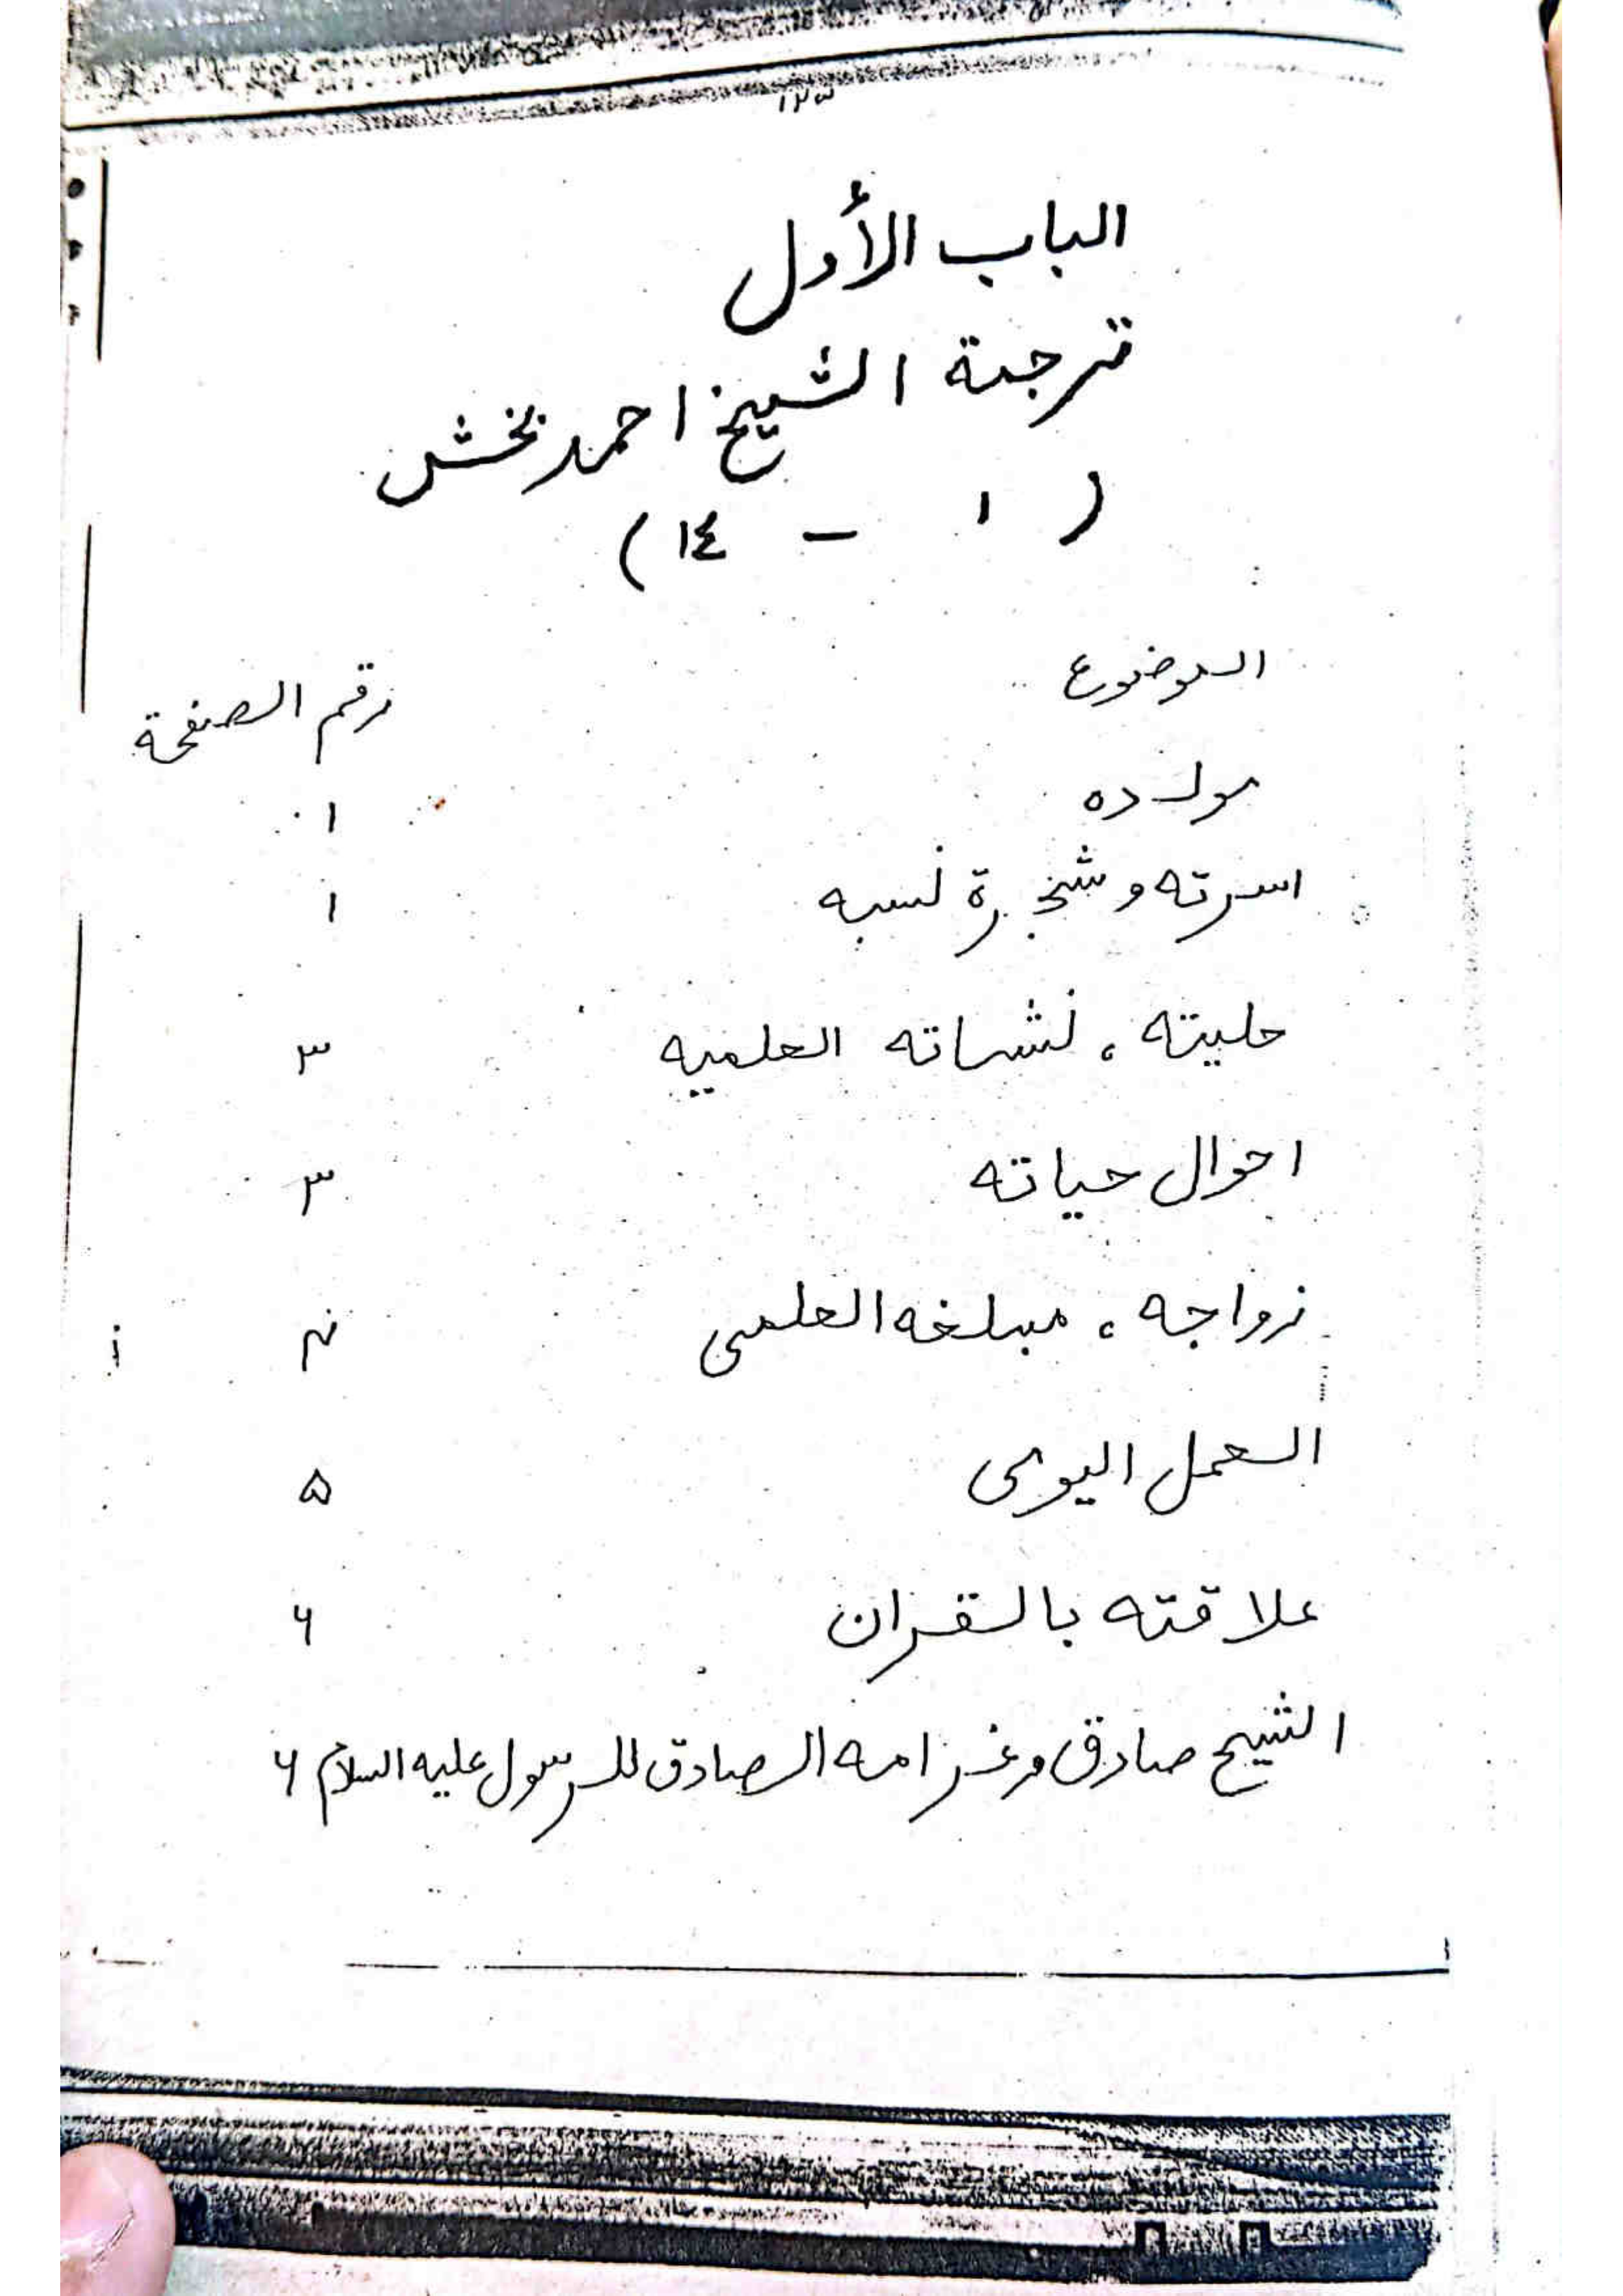 ١٢٣
الباب الأول
ترجمة الشيخ احمد بخش
( ١ - ١٤ )
الموضوع رقم الصفحة
مولده ١
اسرته وشجرة نسبه ١
حليته، نشراته العلميه ٣
احوال حياته ٣
زواجه، مبلغه العلمى ۴
العمل اليومى ۵
علاقته بالقران ۶
الشيخ صادق وغرامه الصادق للرسول عليه السلام ۶